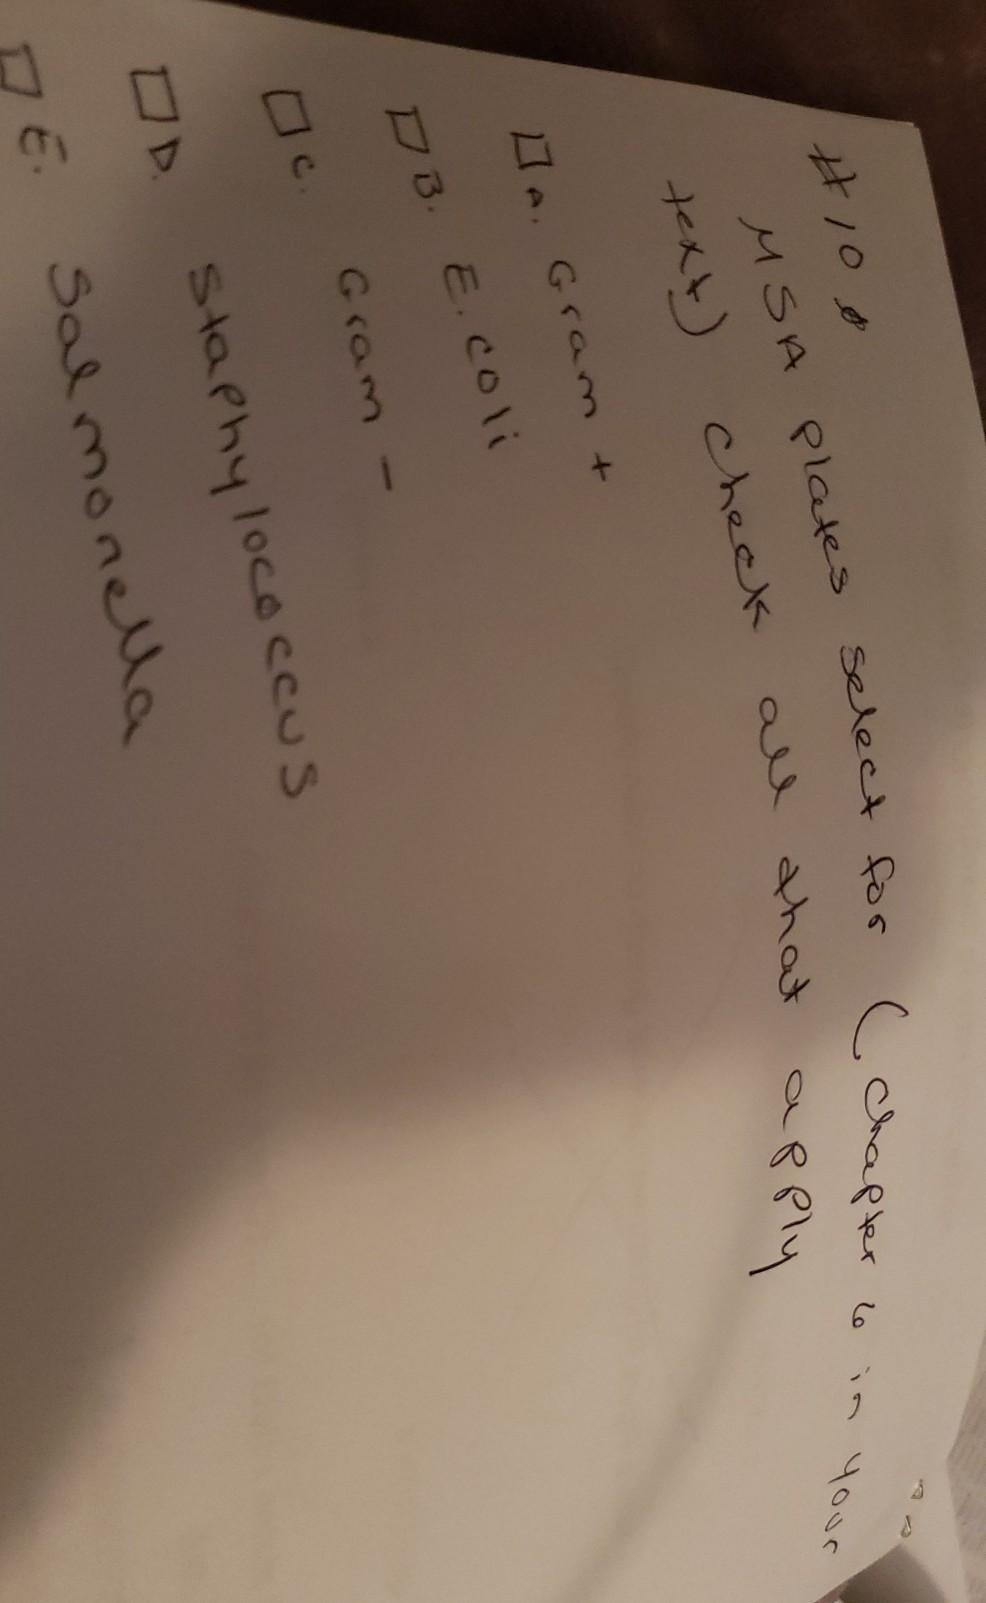 #10
MSA plates select for (Chapter 6 in your
text) Check all that apply
□ A. Gram +
□ B. E. coli
□ C. Gram -
□ D. Staphylococcus
□ E. Salmonella